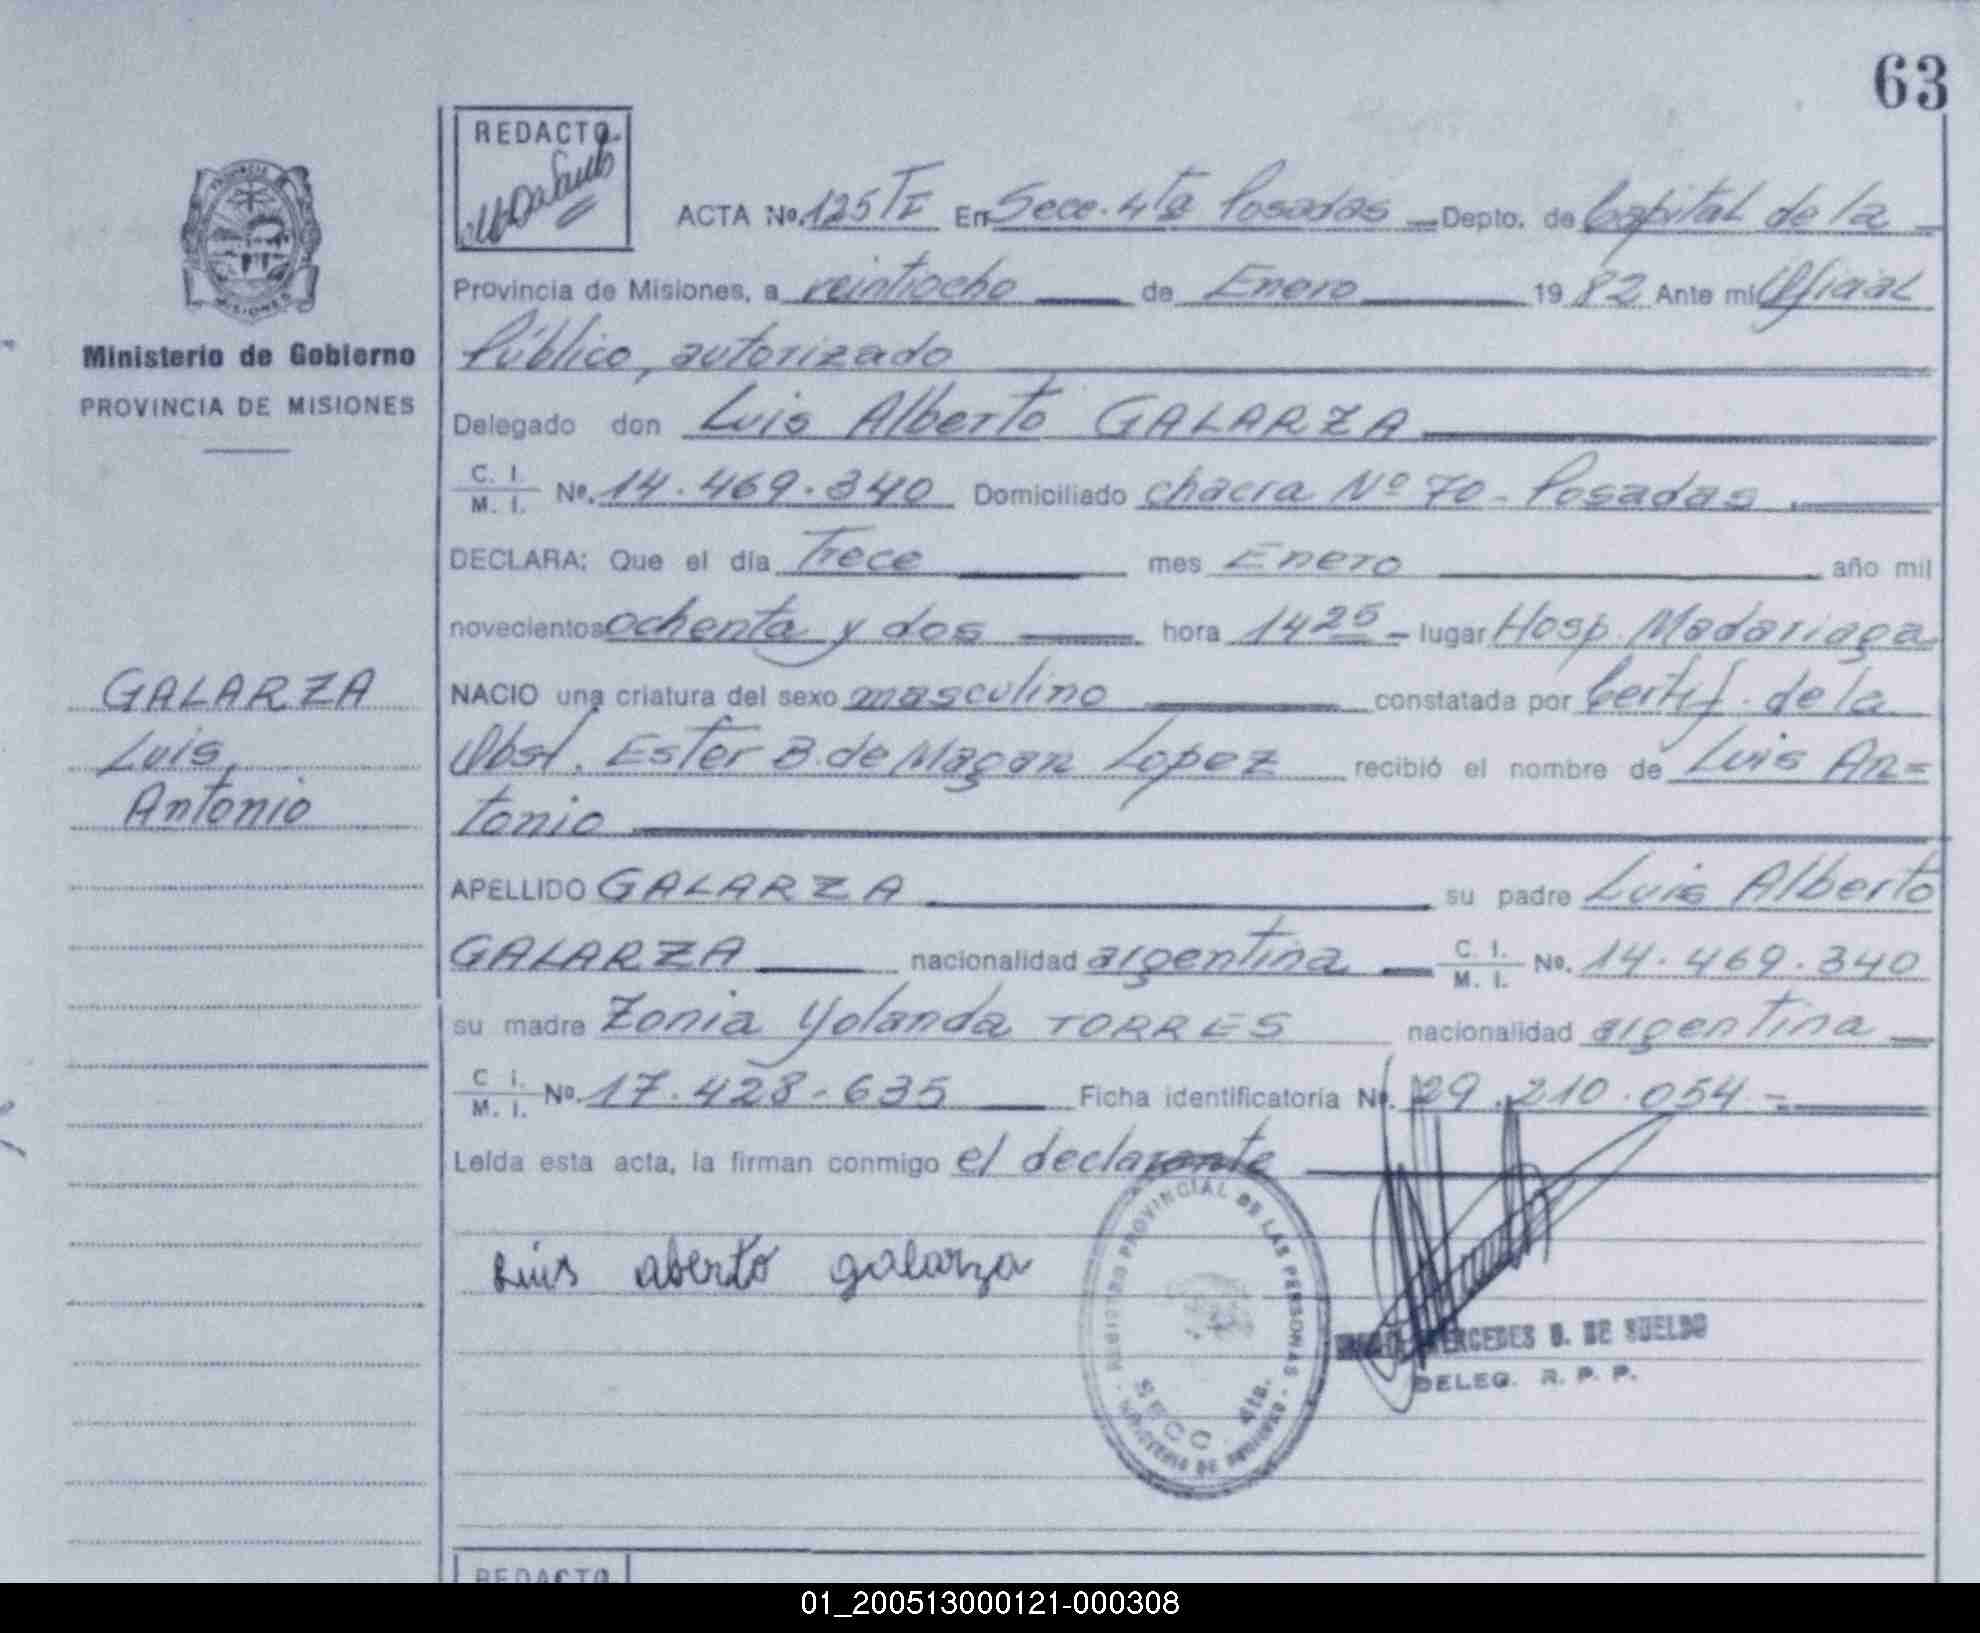 63
REDACTO
ACTA No. 125 TI En Secc. 4ta Posadas Depto. de Capital de la
Provincia de Misiones, a veintiocho de Enero 19 82 Ante mi Oficial
Ministerio de Gobierno
PROVINCIA DE MISIONES
Público, autorizado
Delegado don Luis Alberto GALARZA
C. I. / M. I. No. 14.469.340 Domiciliado chacra Nº 70 - Posadas
DECLARA: Que el día Trece mes Enero año mil
novecientos ochenta y dos hora 14 25 - lugar Hosp. Madariaga
GALARZA
Luis
Antonio
NACIO una criatura del sexo masculino constatada por Certif. de la
Obst. Ester B. de Magan Lopez recibió el nombre de Luis An=
tonio
APELLIDO GALARZA su padre Luis Alberto
GALARZA nacionalidad argentina C. I. / M. I. No. 14.469.340
su madre Zonia Yolanda TORRES nacionalidad argentina
C. I. / M. I. No. 17.428.635 Ficha identificatoria No. 29.210.054 -
Leída esta acta, la firman conmigo el declarante
Luis aberto galarza
REGISTRO PROVINCIAL DE LAS PERSONAS
SECC. 4ta.
MINISTERIO DE GOBIERNO
MERCEDES B. DE SUELDO
DELEG. R. P. P.
REDACTO
01_200513000121-000308